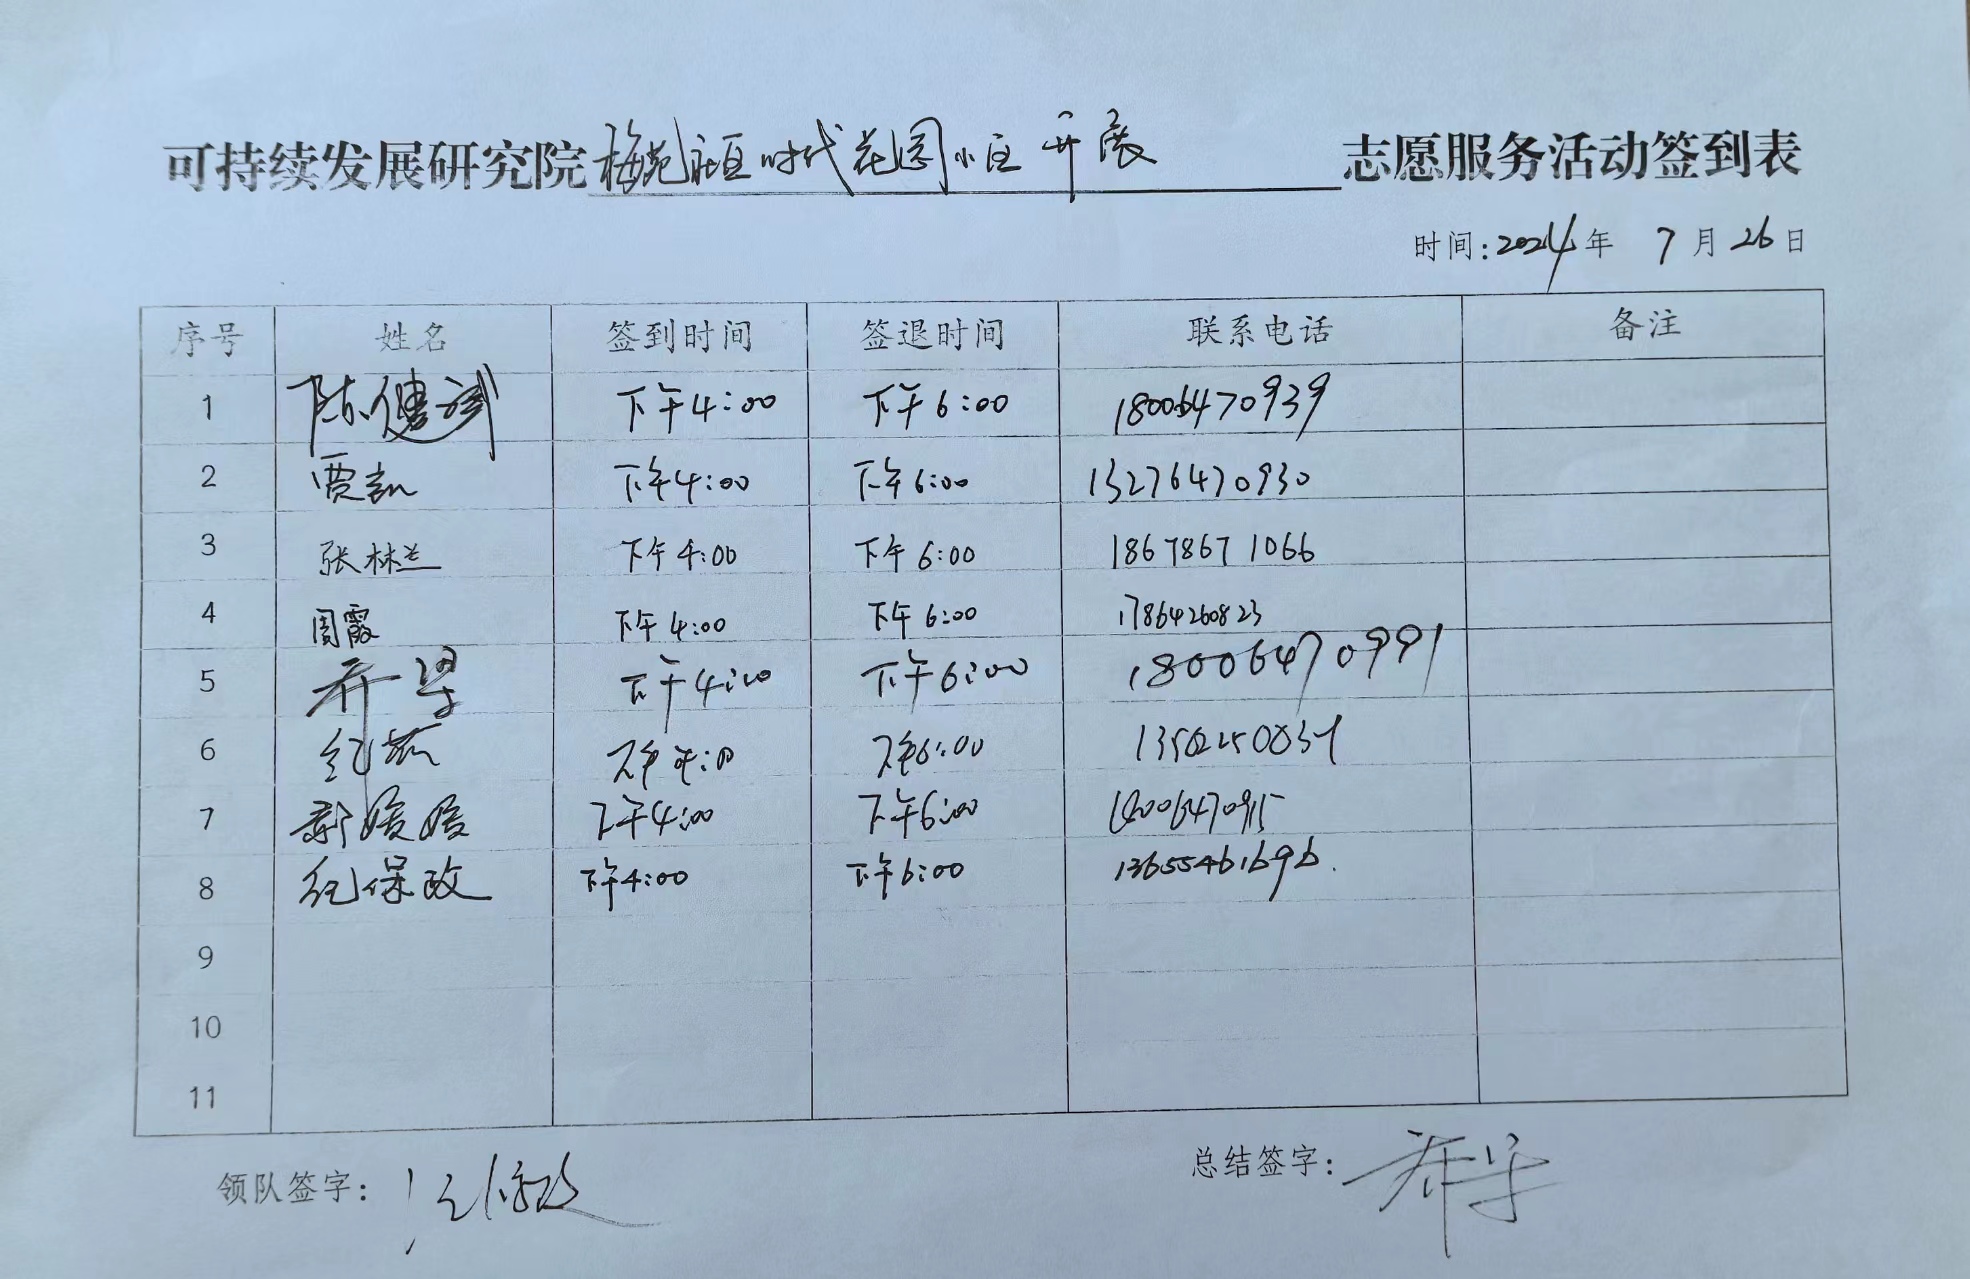 可持续发展研究院梅苑社区时代花园小区开展志愿服务活动签到表
时间:2024年 7月26日
序号 姓名 签到时间 签退时间 联系电话 备注
1 陈健斌 下午4:00 下午6:00 18006470939
2 贾凯 下午4:00 下午6:00 13276470930
3 张林兰 下午4:00 下午6:00 18678671066
4 周霞 下午4:00 下午6:00 17864260823
5 下午4:00 下午6:00 18006470991
6 下午4:00 下午6:00
7 下午4:00 下午6:00
8 纪保政 下午4:00 下午6:00 13655461696.
9
10
11
领队签字: 总结签字: